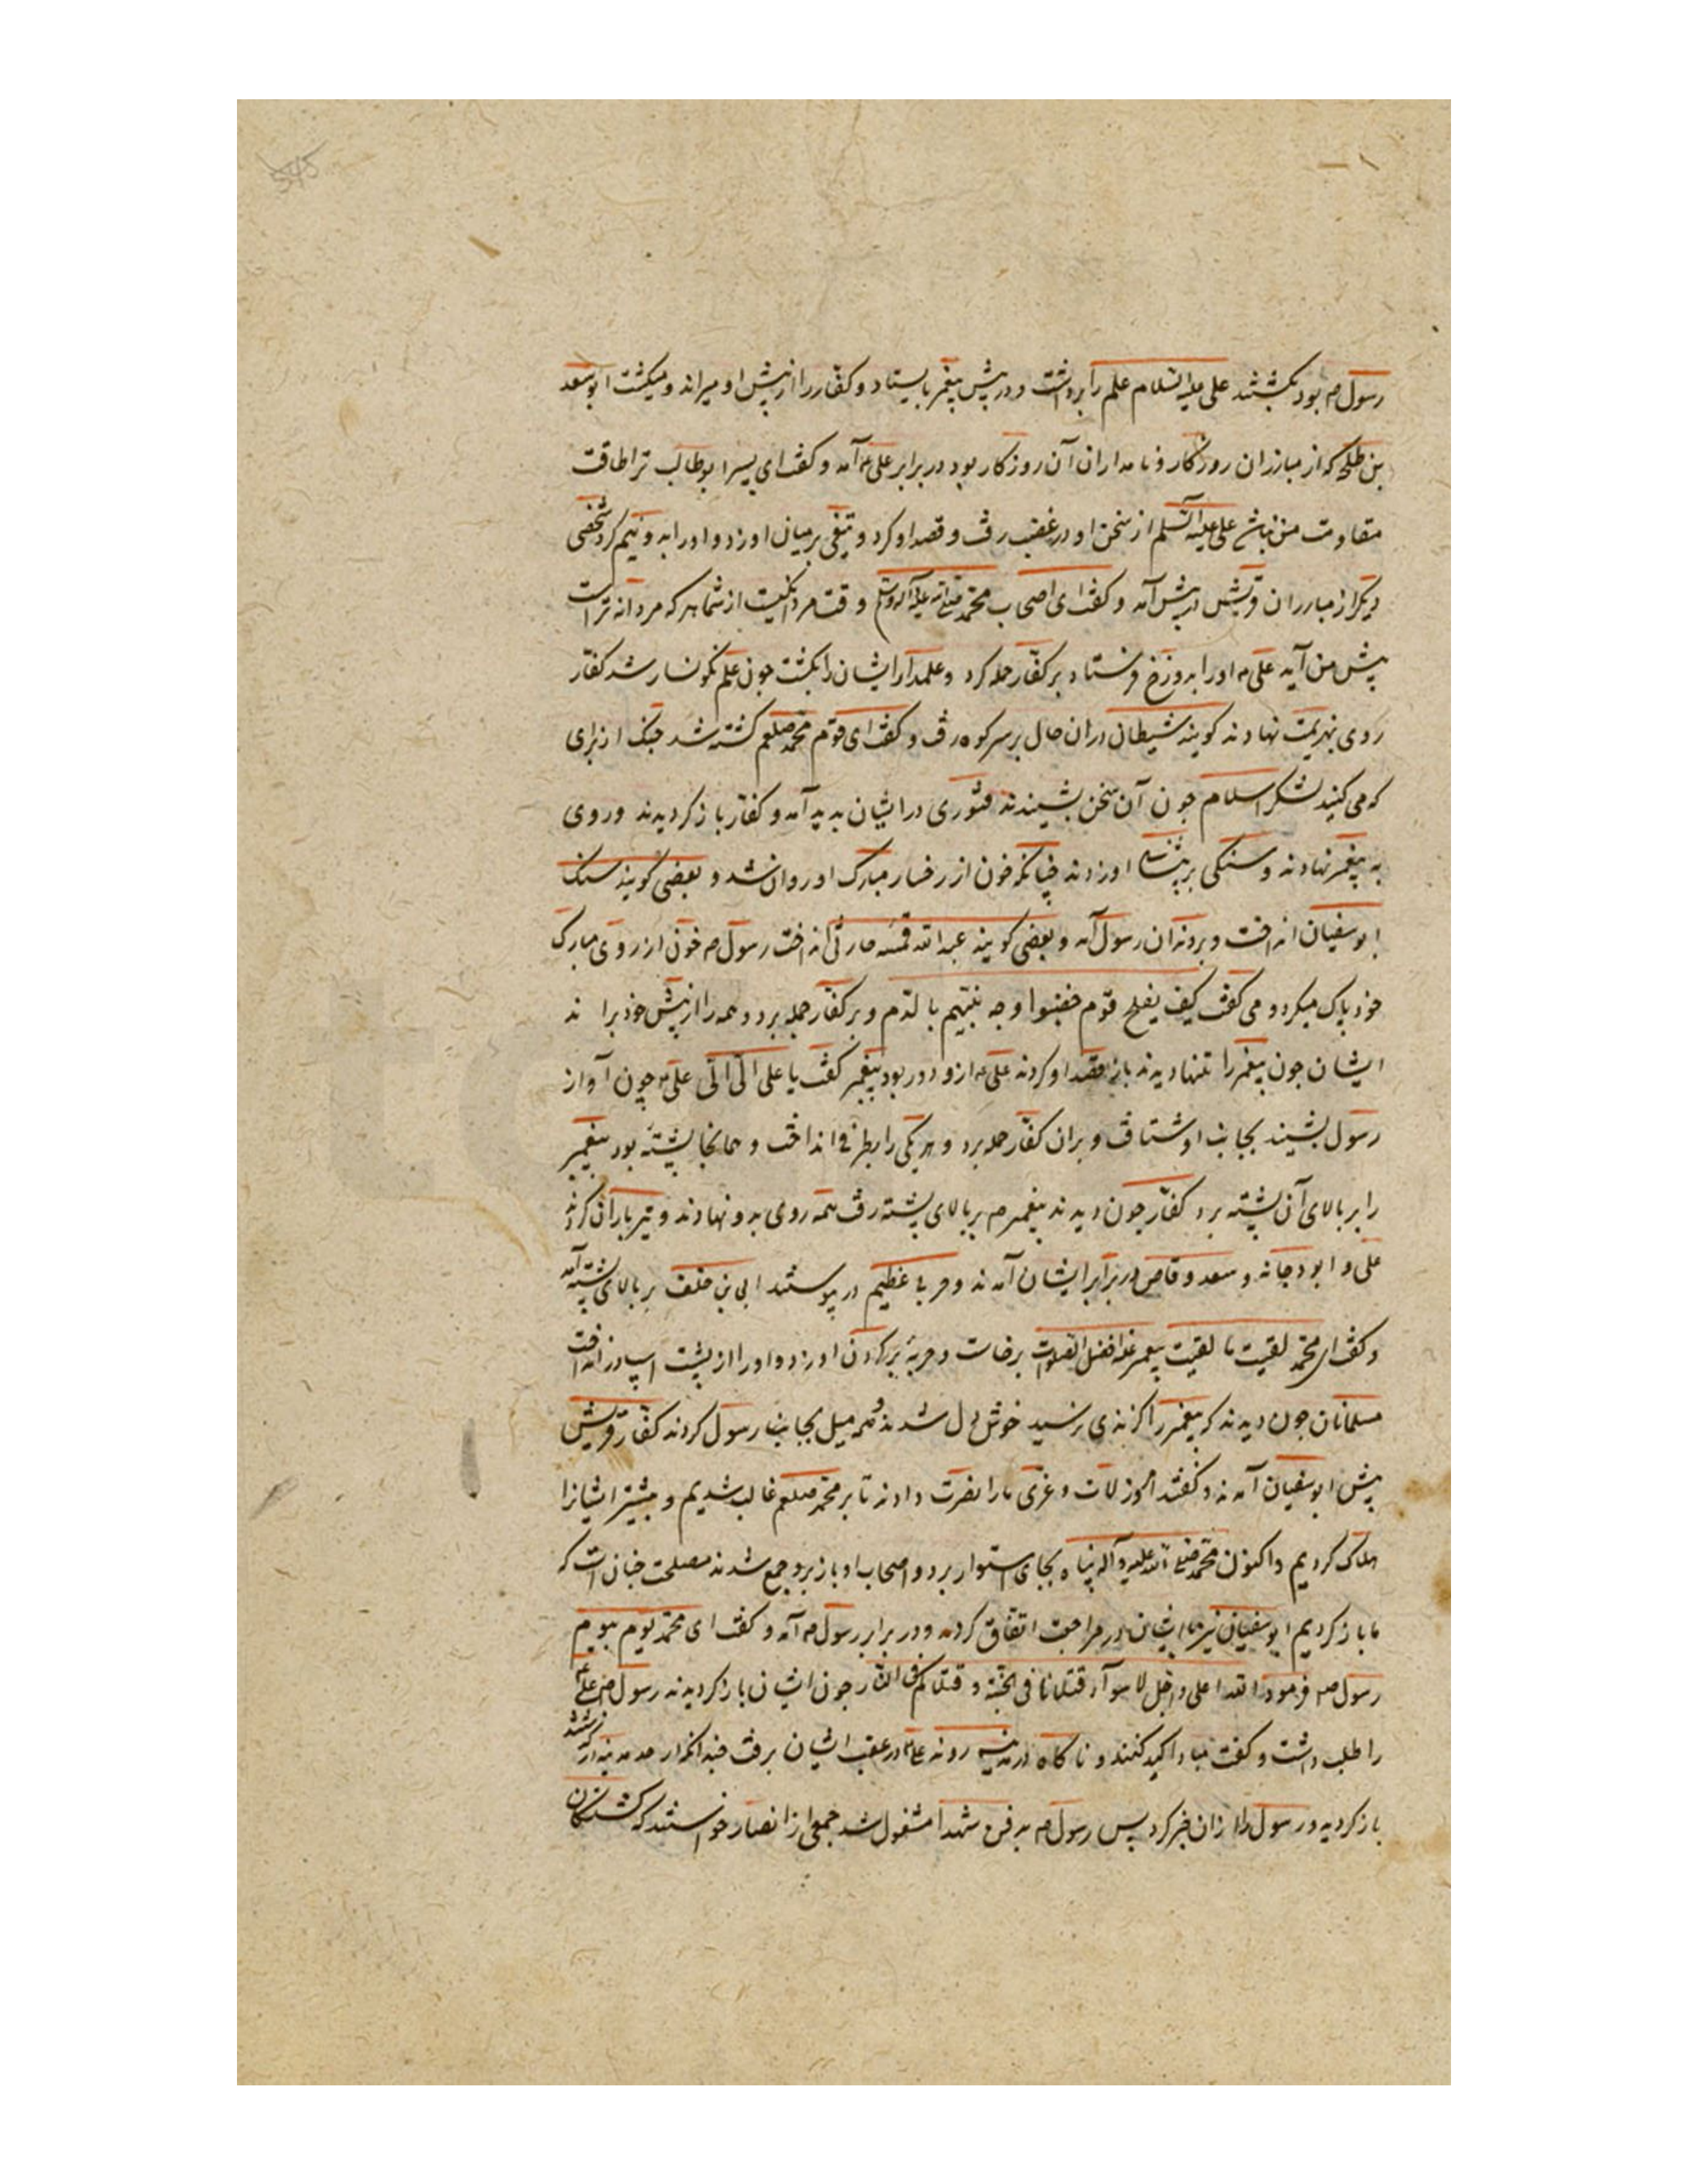 رسول ص بود بکشتند علی علیه السلام علم را برداشت و در پیش پیغمبر بایستاد و کفار را از پیش او میراند و میکشت ابوسعد
بن طلحه که از مبارزان روزکار و نامداران آن روزکار بود در برابر علی ع آمد و کفت ای پسر ابوطالب ترا طاقت
مقاومت من نباشد علی علیه السلم از سخن او در غضب رفت و قصد او کرد و تیغی بر میان او زد و او را بدو نیم کرد شخصی
دیکر از مبارزان قریش در پیش آمد و کفت ای اصحاب محمد صلی الله علیه و آله وسلم وقت مردانکیست از شما هر که مردانه تراست
پیش من آید علی ع او را بدوزخ فرستاد بر کفار حمله کرد و علمدار ایشان را بکشت جون علم نکونسار شد کفار
روی بهزیمت نهادند کویند شیطان در ان حال بر سر کوه رفت و کفت ای قوم محمد صلعم کشته شد جنک از برای
که می کنید لشکر اسلام جون آن سخن بشنیدند فتوری در ایشان بدید آمد و کفار باز کردیدند و روی
به پیغمبر نهادند و سنکی بر او زدند چنانکه خون از رخسار مبارک او روان شد و بعضی کویند سنک
ابوسفیان انداخت و بر دندان رسول آمد و بعضی کویند عبدالله قمئه حارثی انداخت رسول ص خون از روی مبارک
خود پاک میکرد و می کفت کیف یفلح قوم خضبوا وجه نبیهم بالدم و بر کفار حمله برد و همه را از پیش خود براند
ایشان جون پیغمبر را تنها دیدند باز قصد او کردند علی ع ازو دور بود پیغمبر کفت یا علی الی الی علی ع چون آواز
رسول بشنید بجانب او شتافت و بران کفار حمله برد و هر یکی را بطرفی انداخت و همانجا پشتهٔ بود پیغمبر
را بر بالای آن پشته برد کفار جون دیدند پیغمبر ص بر بالای پشته رفت همه روی بدو نهادند و تیرباران کردند
علی و ابودجانه و سعد وقاص در برابر ایشان آمدند و حربی عظیم درپیوستند ابی بن خلف بر بالای پشته آمد
و کفت ای محمد لقیت ما لقیت پیغمبر علیه افضل الصلوات برخاست و حربهٔ بر کردن او زد و او را از پشت اسپ در انداخت
مسلمانان جون دیدند که پیغمبر را کزندی نرسید خوش دل شدند و همه میل بجانب رسول کردند کفار قریش
پیش ابوسفیان آمدند و کفتند امروز لات و عزی ما را نصرت دادند تا بر محمد صلعم غالب شدیم و بیشتر ایشانرا
هلاک کردیم و اکنون محمد صلی الله علیه و آله پناه بجای استوار برد و اصحاب او باز برو جمع شدند مصلحت جنان است که
ما باز کردیم ابوسفیان نیز با ایشان در مراجعت اتفاق کرد و در برابر رسول ص آمد و کفت ای محمد یوم بیوم
رسول ص فرمود الله اعلی و اجل لا سواء قتلانا فی الجنة و قتلاکم فی النار جون ایشان باز کردیدند رسول ص علی ع
را طلب داشت و کفت مبادا کید کنند و ناکاه در مدینه روند علی ع در عقب ایشان برفت از مدینه درکذشتند
باز کردید و رسول را از ان خبر کرد پس رسول ص به دفن شهدا مشغول شد جمعی از انصار خواستند که کشتکان